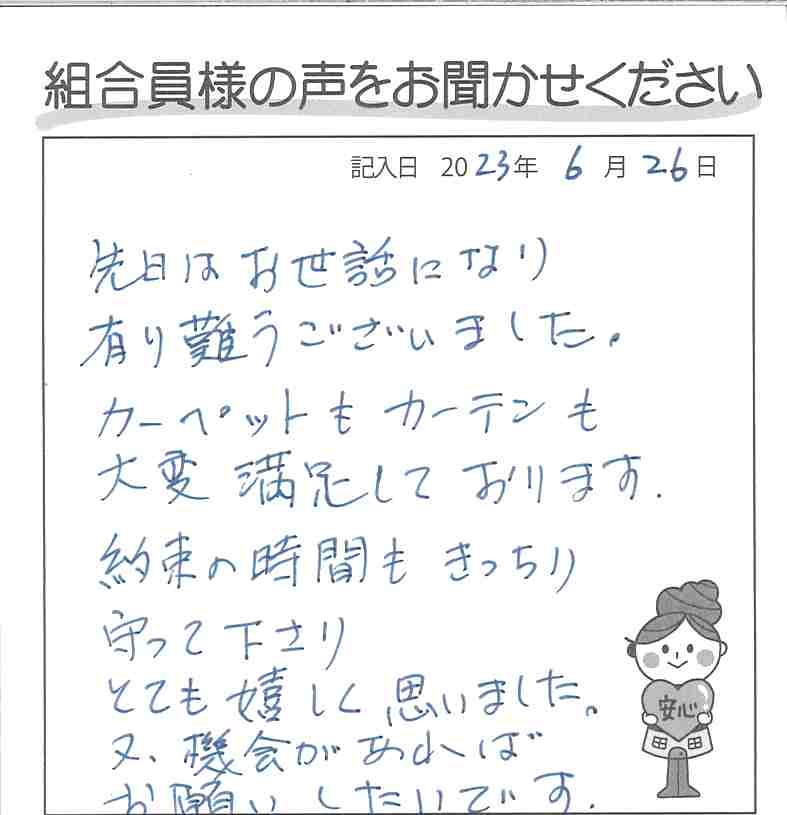 組合員様の声をお聞かせください
記入日 2023年 6月 26日
先日はお世話になり
有り難うございました。
カーペットもカーテンも
大変満足しております.
約束の時間もきっちり
守って下さり
とても嬉しく思いました。
又、機会があれば
お願いしたいです.
安心